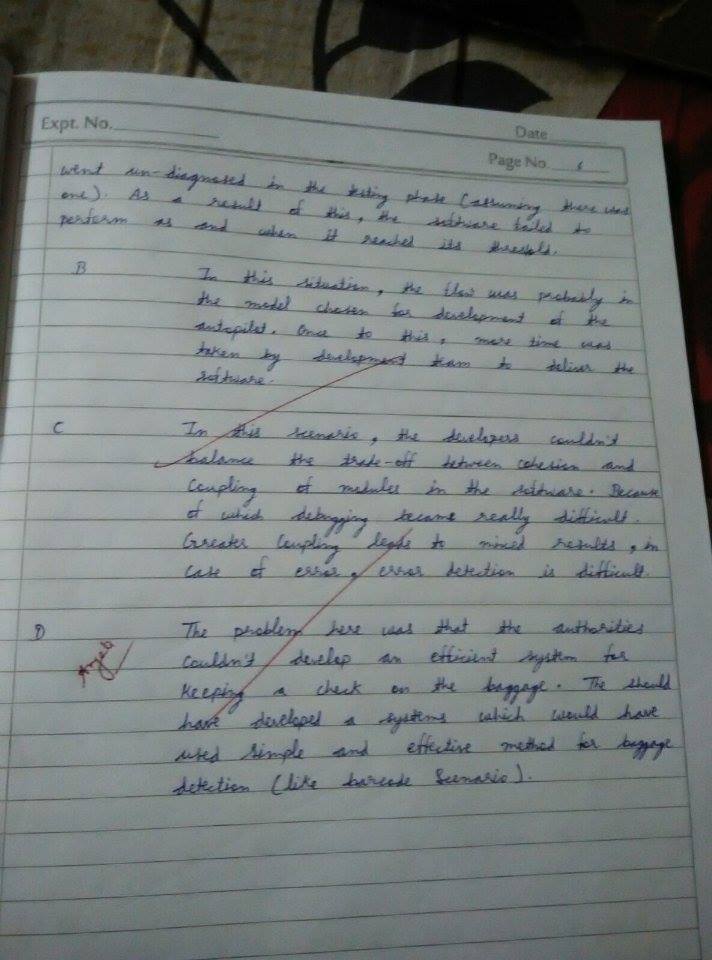 Expt. No.
Date
Page No. 6
went un-diagnosed in the testing phase (assuming there was
one). As a result of this, the software failed to
perform as and when it reached its threshold.
B In this situation, the flaw was probably in
the model chosen for development of the
autopilot. Once to this, more time was
taken by development team to deliver the
software.
C In this scenario, the developers couldn't
balance the trade-off between cohesion and
coupling of modules in the software. Because
of which debugging became really difficult.
Greater Coupling leads to mixed results, in
case of error, error detection is difficult.
D The problem here was that the authorities
couldn't develop an efficient system for
keeping a check on the baggage. The should
have developed a systems which would have
used simple and effective method for baggage
detection (like barcode Scenario).